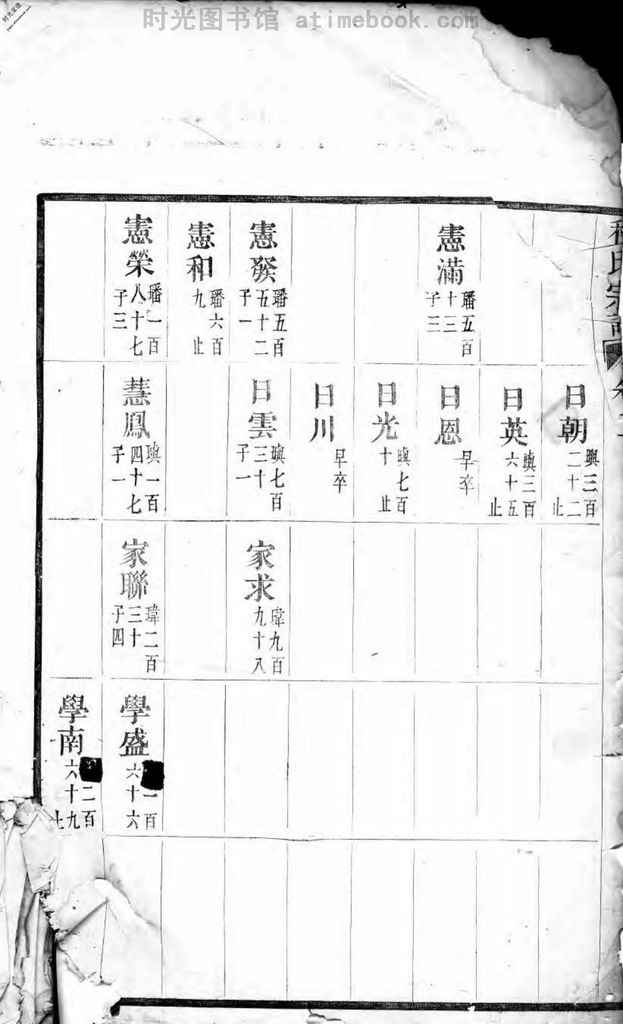 时光图书馆 atimebook.com
氏宗譜
日朝
興三百
二十二
止
日英
興三百
六十五
止
憲滿
璠五百
十三
子三
日恩
早卒
日光
興七百
十
止
日川
早卒
憲發
璠五百
五十二
子一
日雲
興七百
三十
子一
家求
瑋九百
九十八
憲和
璠六百
九
止
憲榮
璠一百
八十七
子三
慧鳳
興一百
四十七
子一
家聯
瑋二百
三十
子四
學盛
一百
六十六
學南
二百
六十九
止